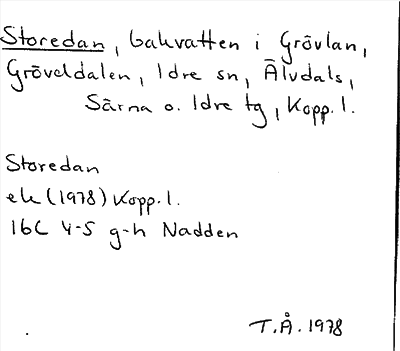 Storedan, bakvatten i Grövlan,
Gröveldalen, Idre sn, Älvdals,
Särna o. Idre tg, Kopp. l.
Storedan
ek (1978) Kopp. l.
16C 4-5 g-h Nadden
T.Å. 1978